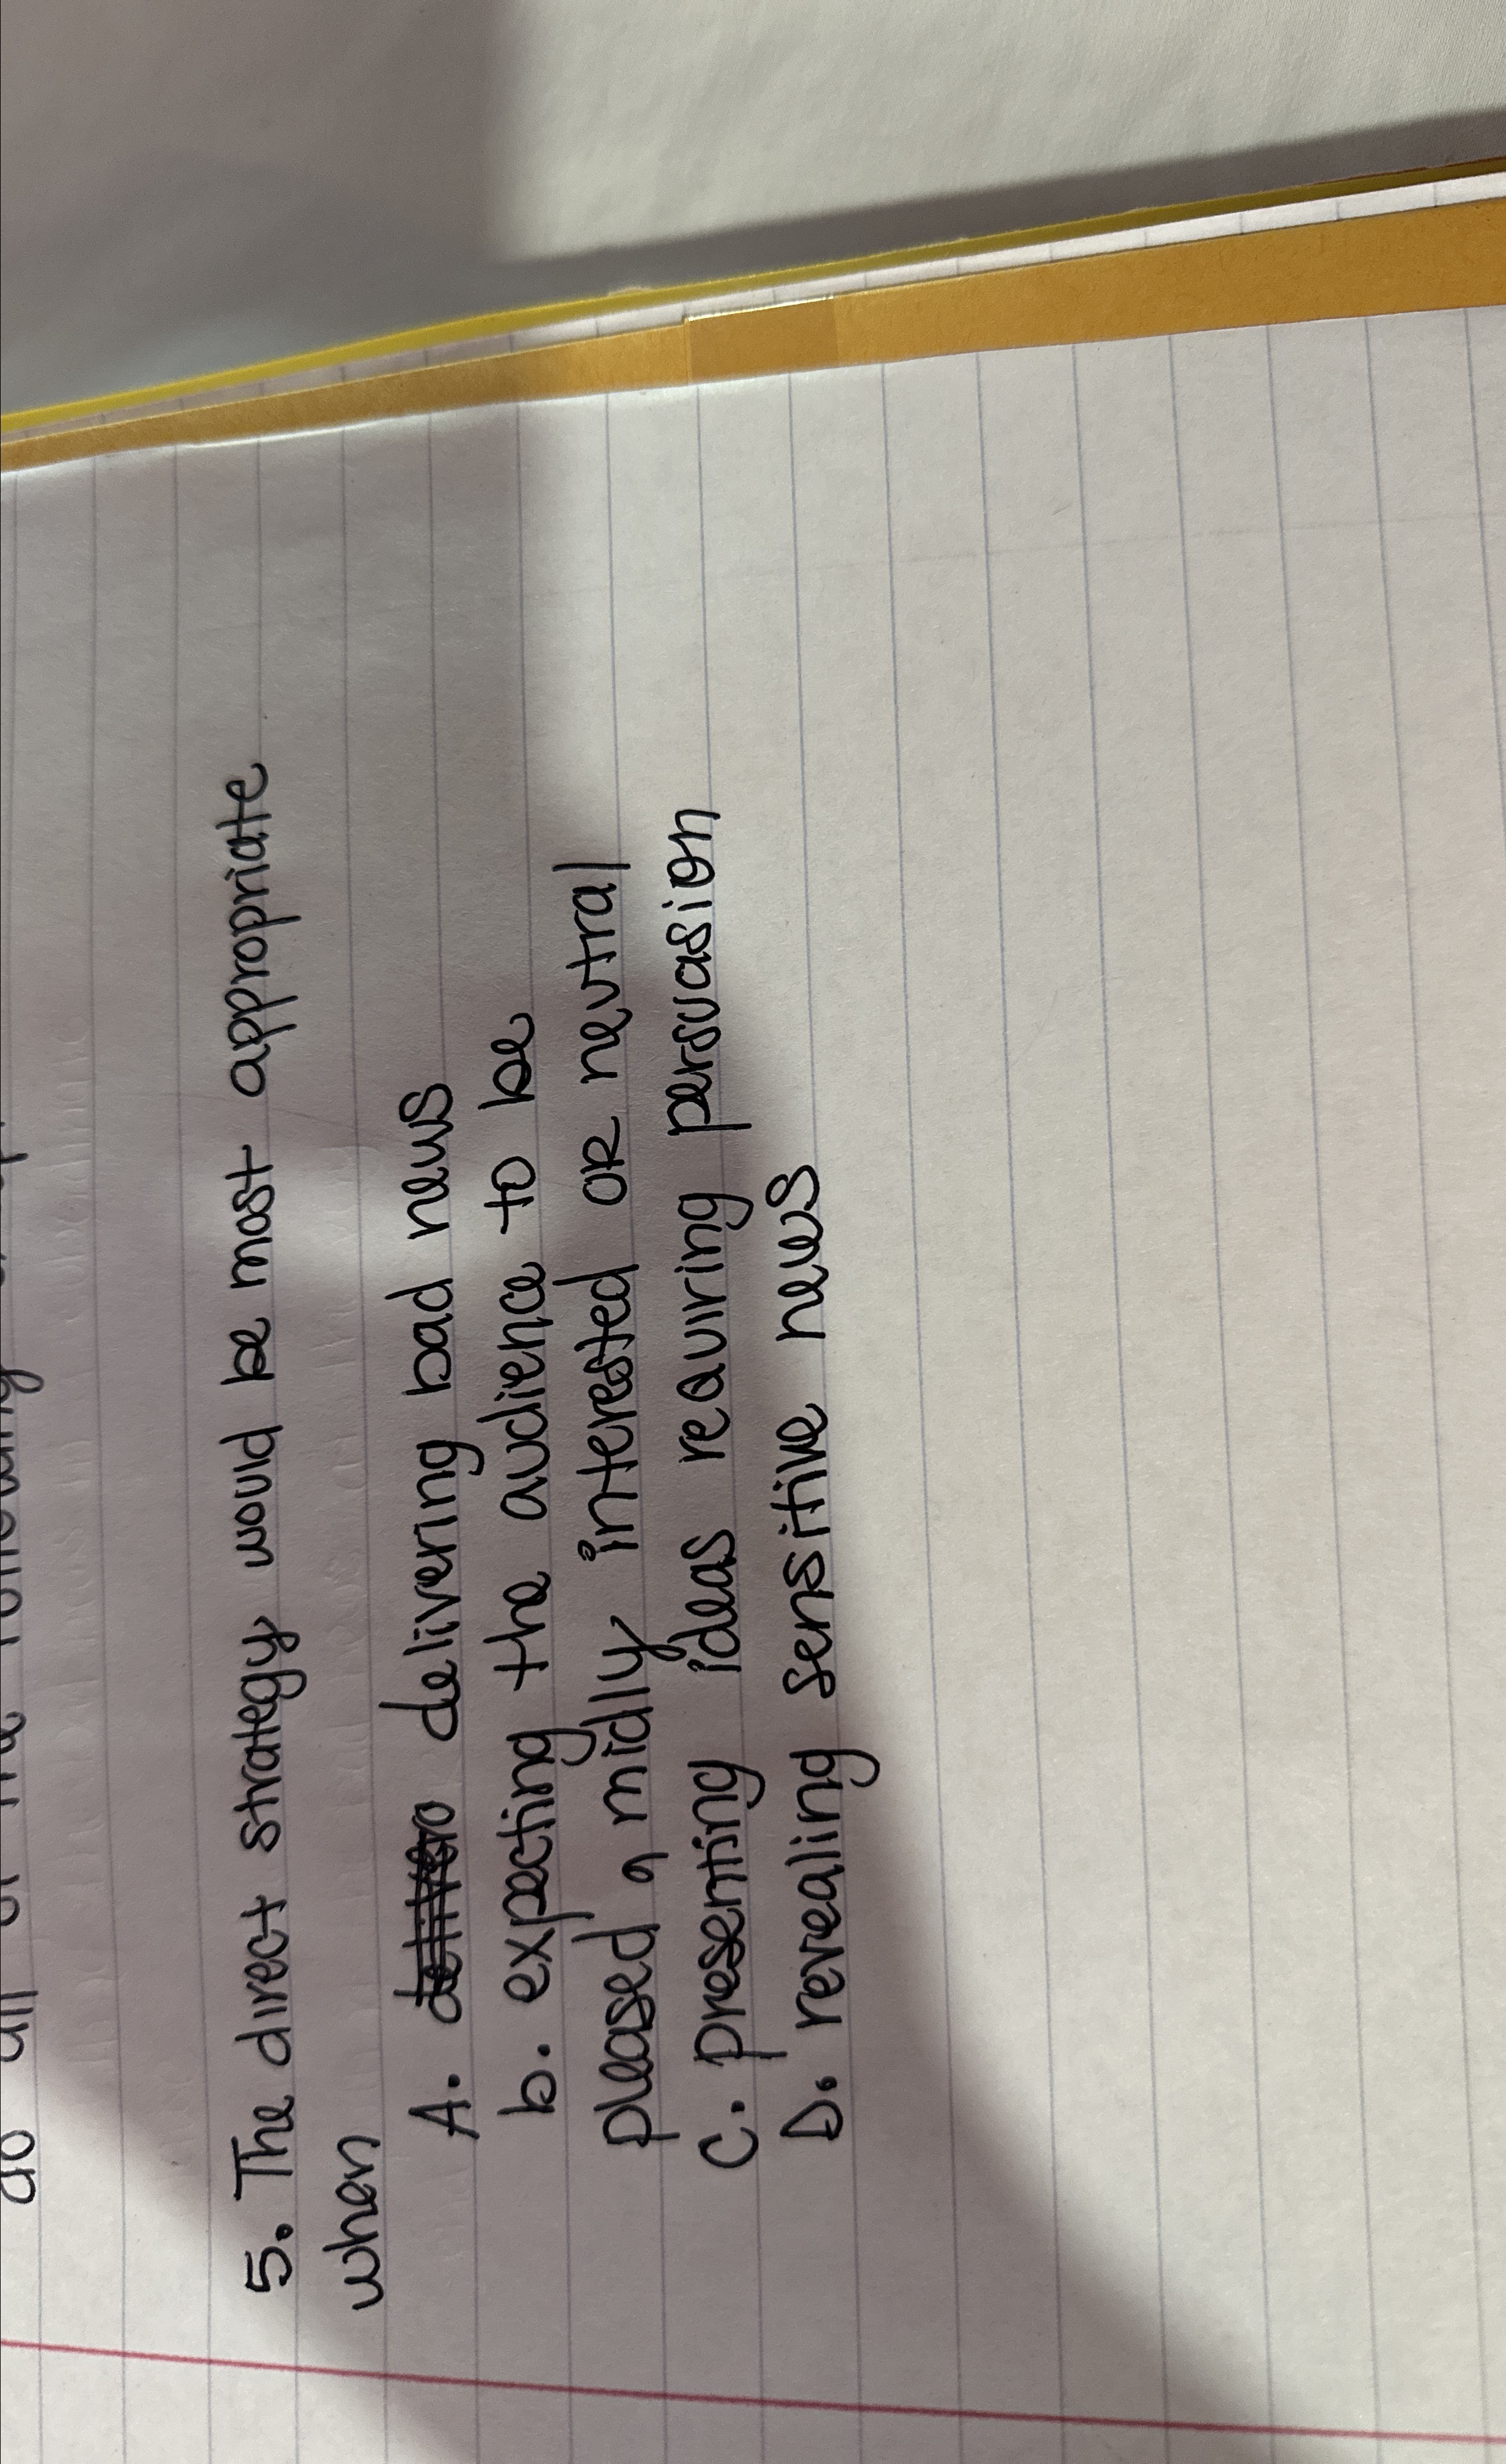 do all of the following
5. The direct strategy would be most appropriate
when
A. delivering bad news
b. expecting the audience to be
pleased, midly interested or neutral
C. presenting ideas requiring persuasion
D. revealing sensitive news